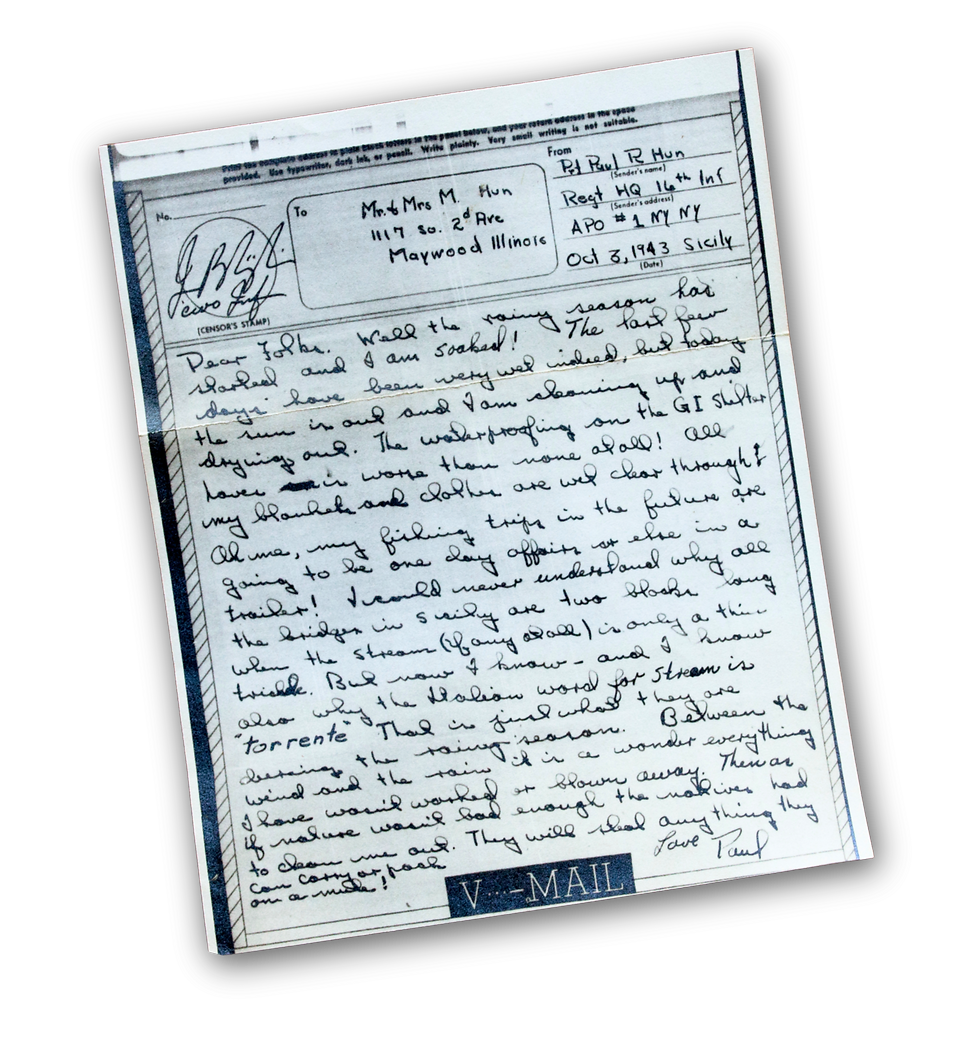 Print the complete address in plain block letters in the panel below, and your return address in the space
provided. Use typewriter, dark ink, or pencil. Write plainly. Very small writing is not suitable.
No.
(CENSOR'S STAMP)
To
Mr. & Mrs M. Hun
1117 So. 2d Ave
Maywood Illinois
From
Pvt Paul R Hun
(Sender's name)
Regt HQ 16th Inf
(Sender's address)
APO #1 NY NY
Oct 3, 1943 Sicily
(Date)
Dear Folks. Well the rainy season has
started and I am soaked! The last few
days have been very wet indeed, but today
the sun is out and I am steaming up and
drying out. The waterproofing on the GI shelter
halves is worse than none at all! All
my blankets and clothes are wet clear through!
Ah me, my fishing trips in the future are
going to be one day affairs or else in a
trailer! I could never understand why all
the bridges in Sicily are two blocks long
when the stream (if any at all) is only a thin
trickle. But now I know - and I know
also why the Italian word for stream is
"torrente" That is just what they are
during the rainy season. Between the
wind and the rain it is a wonder everything
I have wasn't washed or blown away. Then as
if nature wasn't bad enough the natives had
to clean me out. They will steal anything they
can carry or pack
on a mule!
Love Paul
V···–MAIL